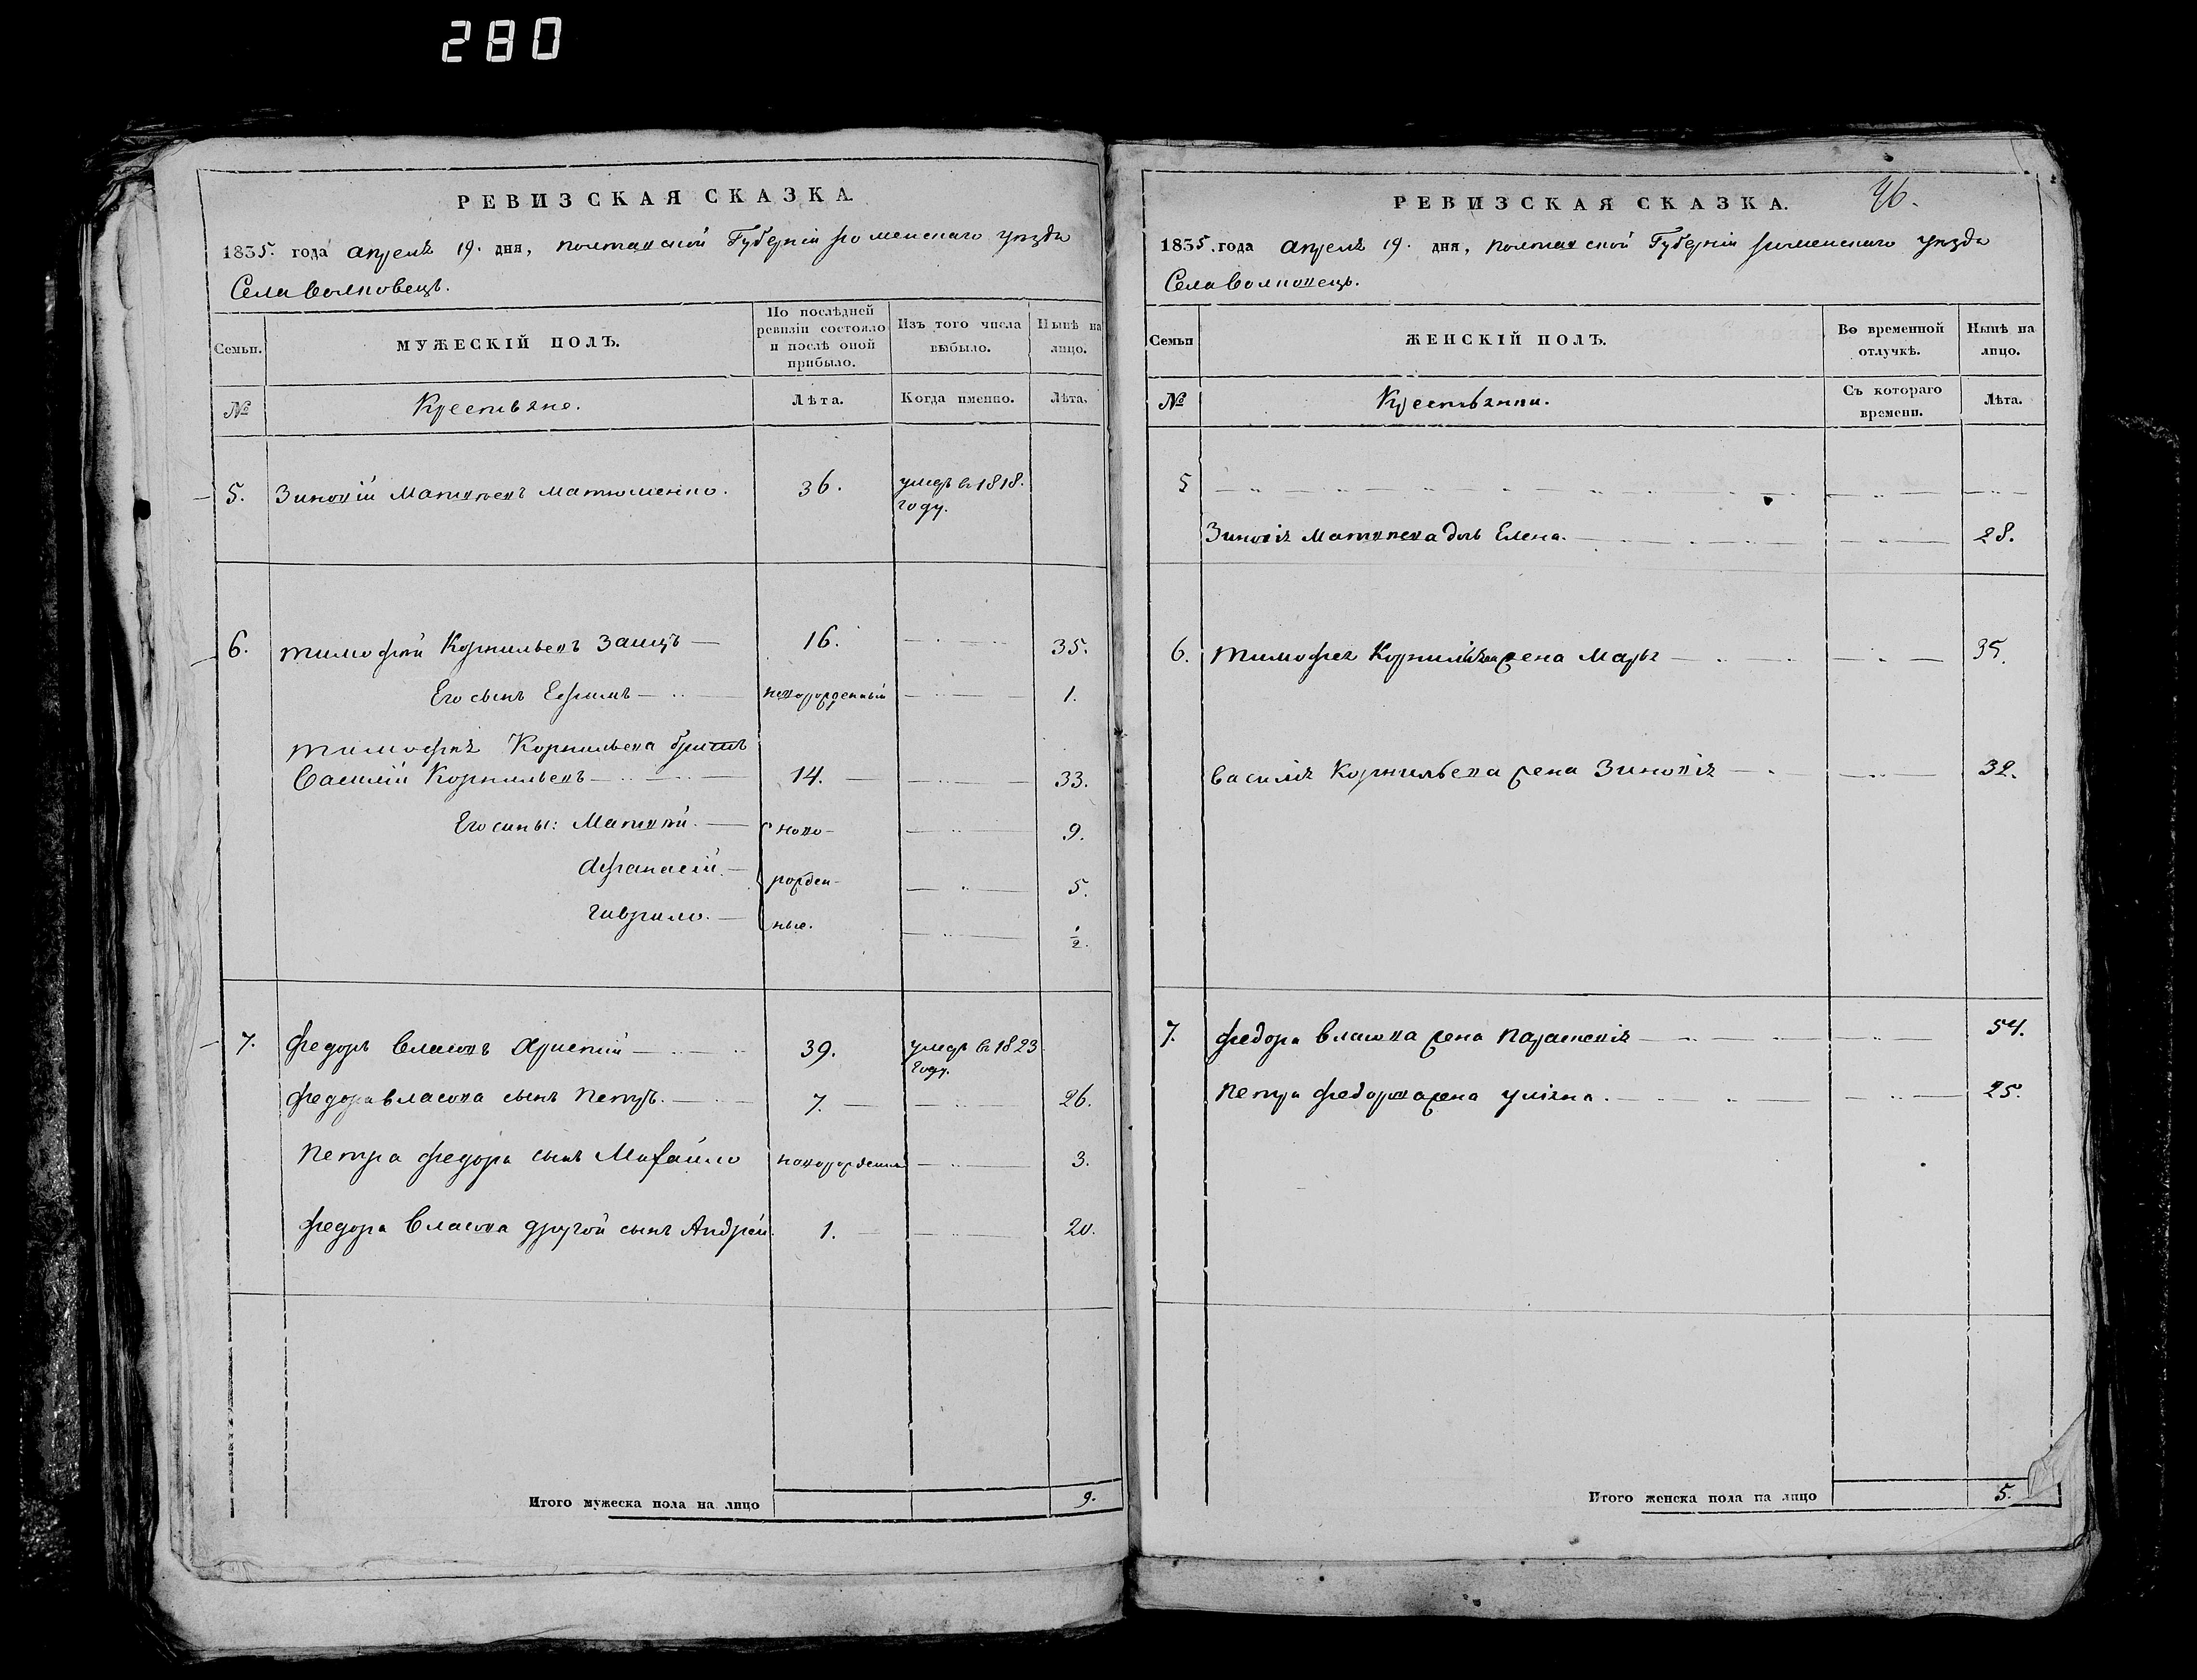 280
РЕВИЗСКАЯ СКАЗКА.
1835. года апреля 19. дня, полтавской Губерніи роменскаго уезда
Села волковецъ.
Семьи.
МУЖЕСКІЙ ПОЛЪ.
По послѣдней ревизіи состояло и послѣ оной прибыло.
Изъ того числа выбыло.
Нынѣ на лицо.
№
Крестьяне.
Лѣта.
Когда именно.
Лѣта.
5. Зиновій Матвѣевъ Матюшенко. 36. умеръ в 1818. году.
6. тимофѣй Корнильевъ Заяцъ 16. 35.
Его сынъ Ефимъ новорожденный 1.
тимофѣя Корнильева братъ
Василій Корнильевъ 14. 33.
Его сины: Матвѣй. ново- 9.
Афанасій. рожден- 5.
гаврило. ные. 1/2.
7. федоръ власовъ 39. умеръ в 1823 году.
федора власова сынъ Петръ. 7. 26.
Петра федора сынъ Михайло новорожденъ 3.
федора власова другой сынъ Андрей. 1. 20.
Итого мужеска пола на лицо 9.
РЕВИЗСКАЯ СКАЗКА.
46.
1835. года апреля 19. дня, полтавской Губерніи роменскаго уезда
Села волковецъ.
Семьи
ЖЕНСКІЙ ПОЛЪ.
Во временной отлучкѣ.
Нынѣ на лицо.
№
Крестьянки.
Съ котораго времени.
Лѣта.
5
Зиновія Матвѣева дочь Елена. 28.
6. тимофея Корнильева жена Марья 35.
василія Корнильева жена Зиновія 32.
7. федора власова жена Параскевія 54.
Петра федорова жена уліяна. 25.
Итого женска пола на лицо 5.